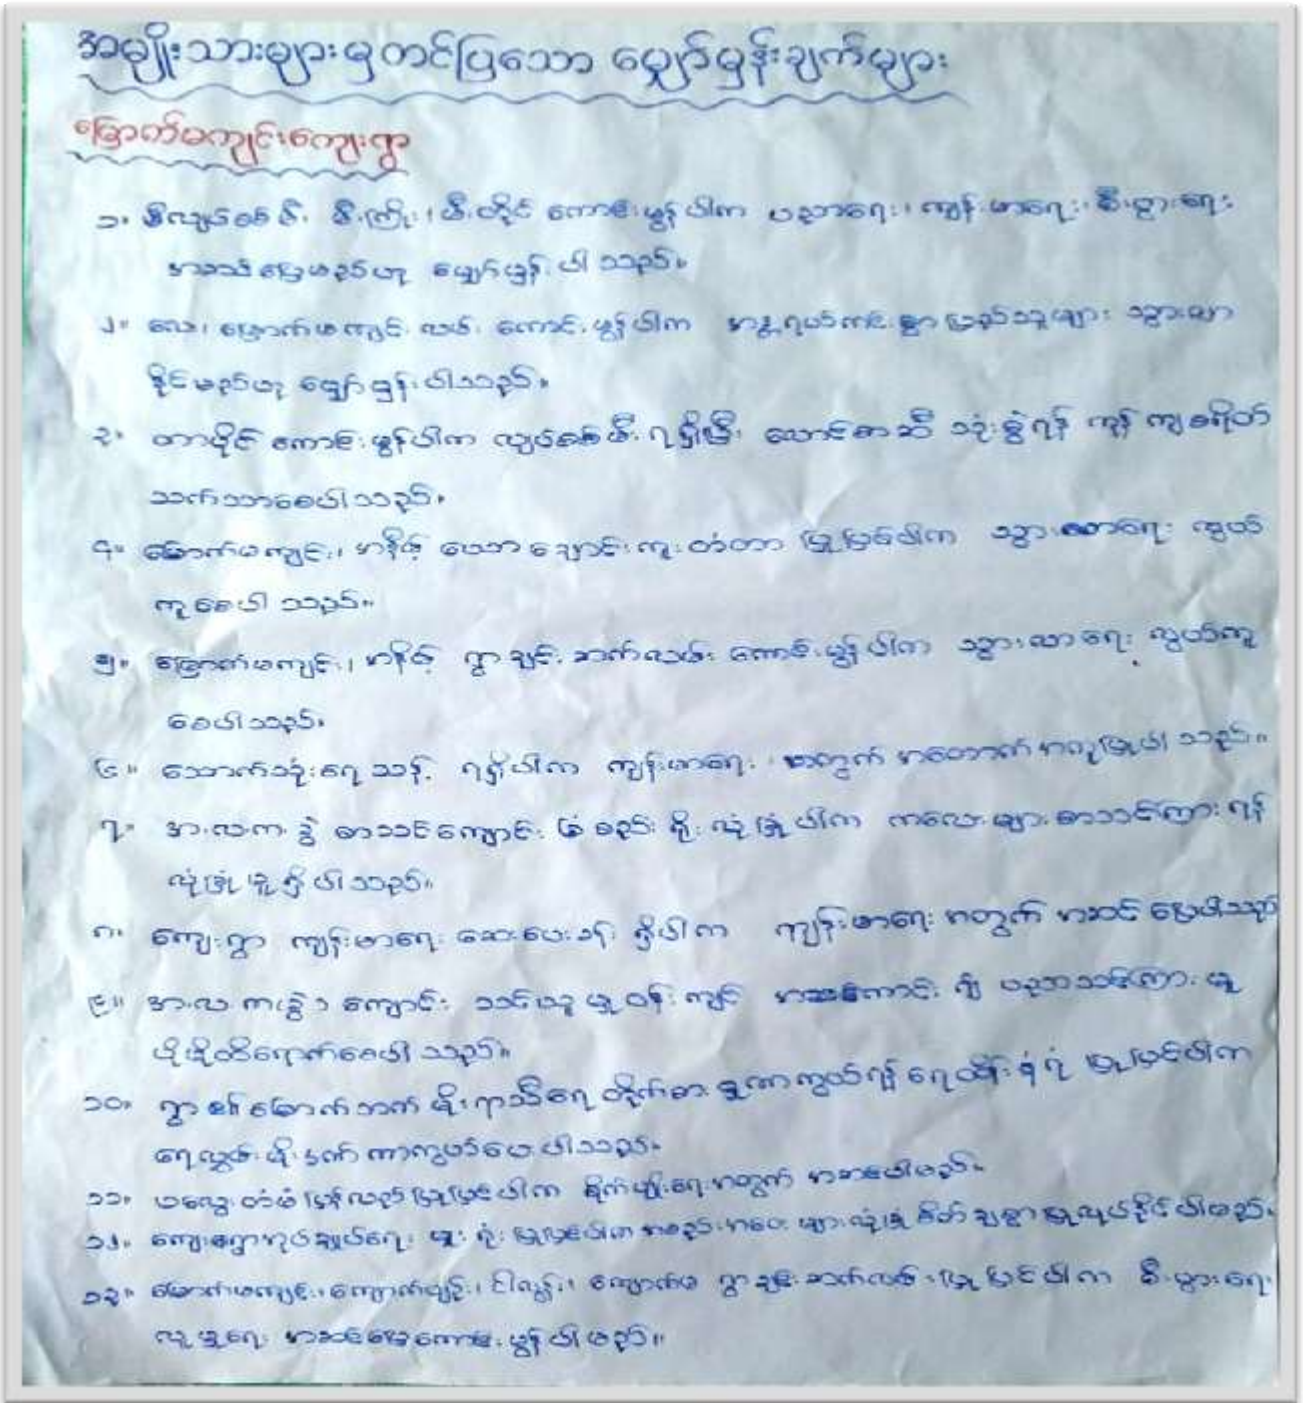 အမျိုးသားများမှတင်ပြသော မျှော်မှန်းချက်များ
မြောက်မကျင်းကျေးရွာ
၁။ မီး၊ မီးကြိုး၊ မီးတိုင် ကောင်းမွန်ပါက ပညာရေး၊ ကျန်းမာရေး၊ စီးပွားရေး
အဆင်ပြေမည်ဟု မျှော်မှန်းပါသည်။
၂။ မြောက်မကျင်း လမ်း ကောင်းမွန်ပါက အန္တရယ်ကင်းစွာ ပြည်သူများ သွားလာ
နိုင်မည်ဟု မျှော်မှန်းပါသည်။
၃။ ကောင်းမွန်ပါက လျှပ်စစ်မီး ရရှိပြီး လောင်စာဆီ သုံးစွဲရန် ကုန်ကျစရိတ်
သက်သာစေပါသည်။
၄။ မြောက်မကျင်း၊ ချောင်းကူးတံတား ပြုပြင်ပါက သွားလာရေး လွယ်
ကူစေပါသည်။
၅။ မြောက်မကျင်း၊ ရွာချင်းဆက်လမ်း ကောင်းမွန်ပါက သွားလာရေး လွယ်ကူ
စေပါသည်။
၆။ သောက်သုံးရေသန့် ရရှိပါက ကျန်းမာရေး အတွက် အထောက်အကူပြုပါသည်။
၇။ အ.လ.က.ခွဲ စာသင်ကျောင်း ခြံစည်းရိုး လုံခြုံပါက ကလေးများ စာသင်ကြားရန်
လုံခြုံမှုရှိပါသည်။
၈။ ကျေးရွာ ကျန်းမာရေး ဆေးပေးခန်း ရှိပါက ကျန်းမာရေးအတွက် အဆင်ပြေပါသည်
၉။ အ.လ.က(ခွဲ) ကျောင်း သင်ယူမှုဝန်းကျင် ကောင်း၍ ပညာသင်ကြားမှု
ပိုမိုထိရောက်စေပါသည်။
၁၀။ ရွာ၏မြောက်ဘက် မိုးရာသီရေတိုက်စားမှုကာကွယ်ရန် ရေထိန်းနံရံ ပြုပြင်ပါက
ရေလွှမ်းမိုးမှုကာကွယ်ပေးပါသည်။
၁၁။ တံမံပြန်လည်ပြုပြင်ပါက စိုက်ပျိုးရေးအတွက်
၁၂။ ကျေးရွာအုပ်ချုပ်ရေးမှူးရုံး ပြုပြင်ပါက အစည်းအဝေးများ လုံခြုံစိတ်ချစွာ ပြုလုပ်နိုင်ပါမည်။
၁၃။ မြောက်မကျင်း၊ ရွာချင်းဆက်လမ်း ပြုပြင်ပါက စီးပွားရေး
လူမှုရေး အဆင်ပြေကောင်းမွန်ပါမည်။